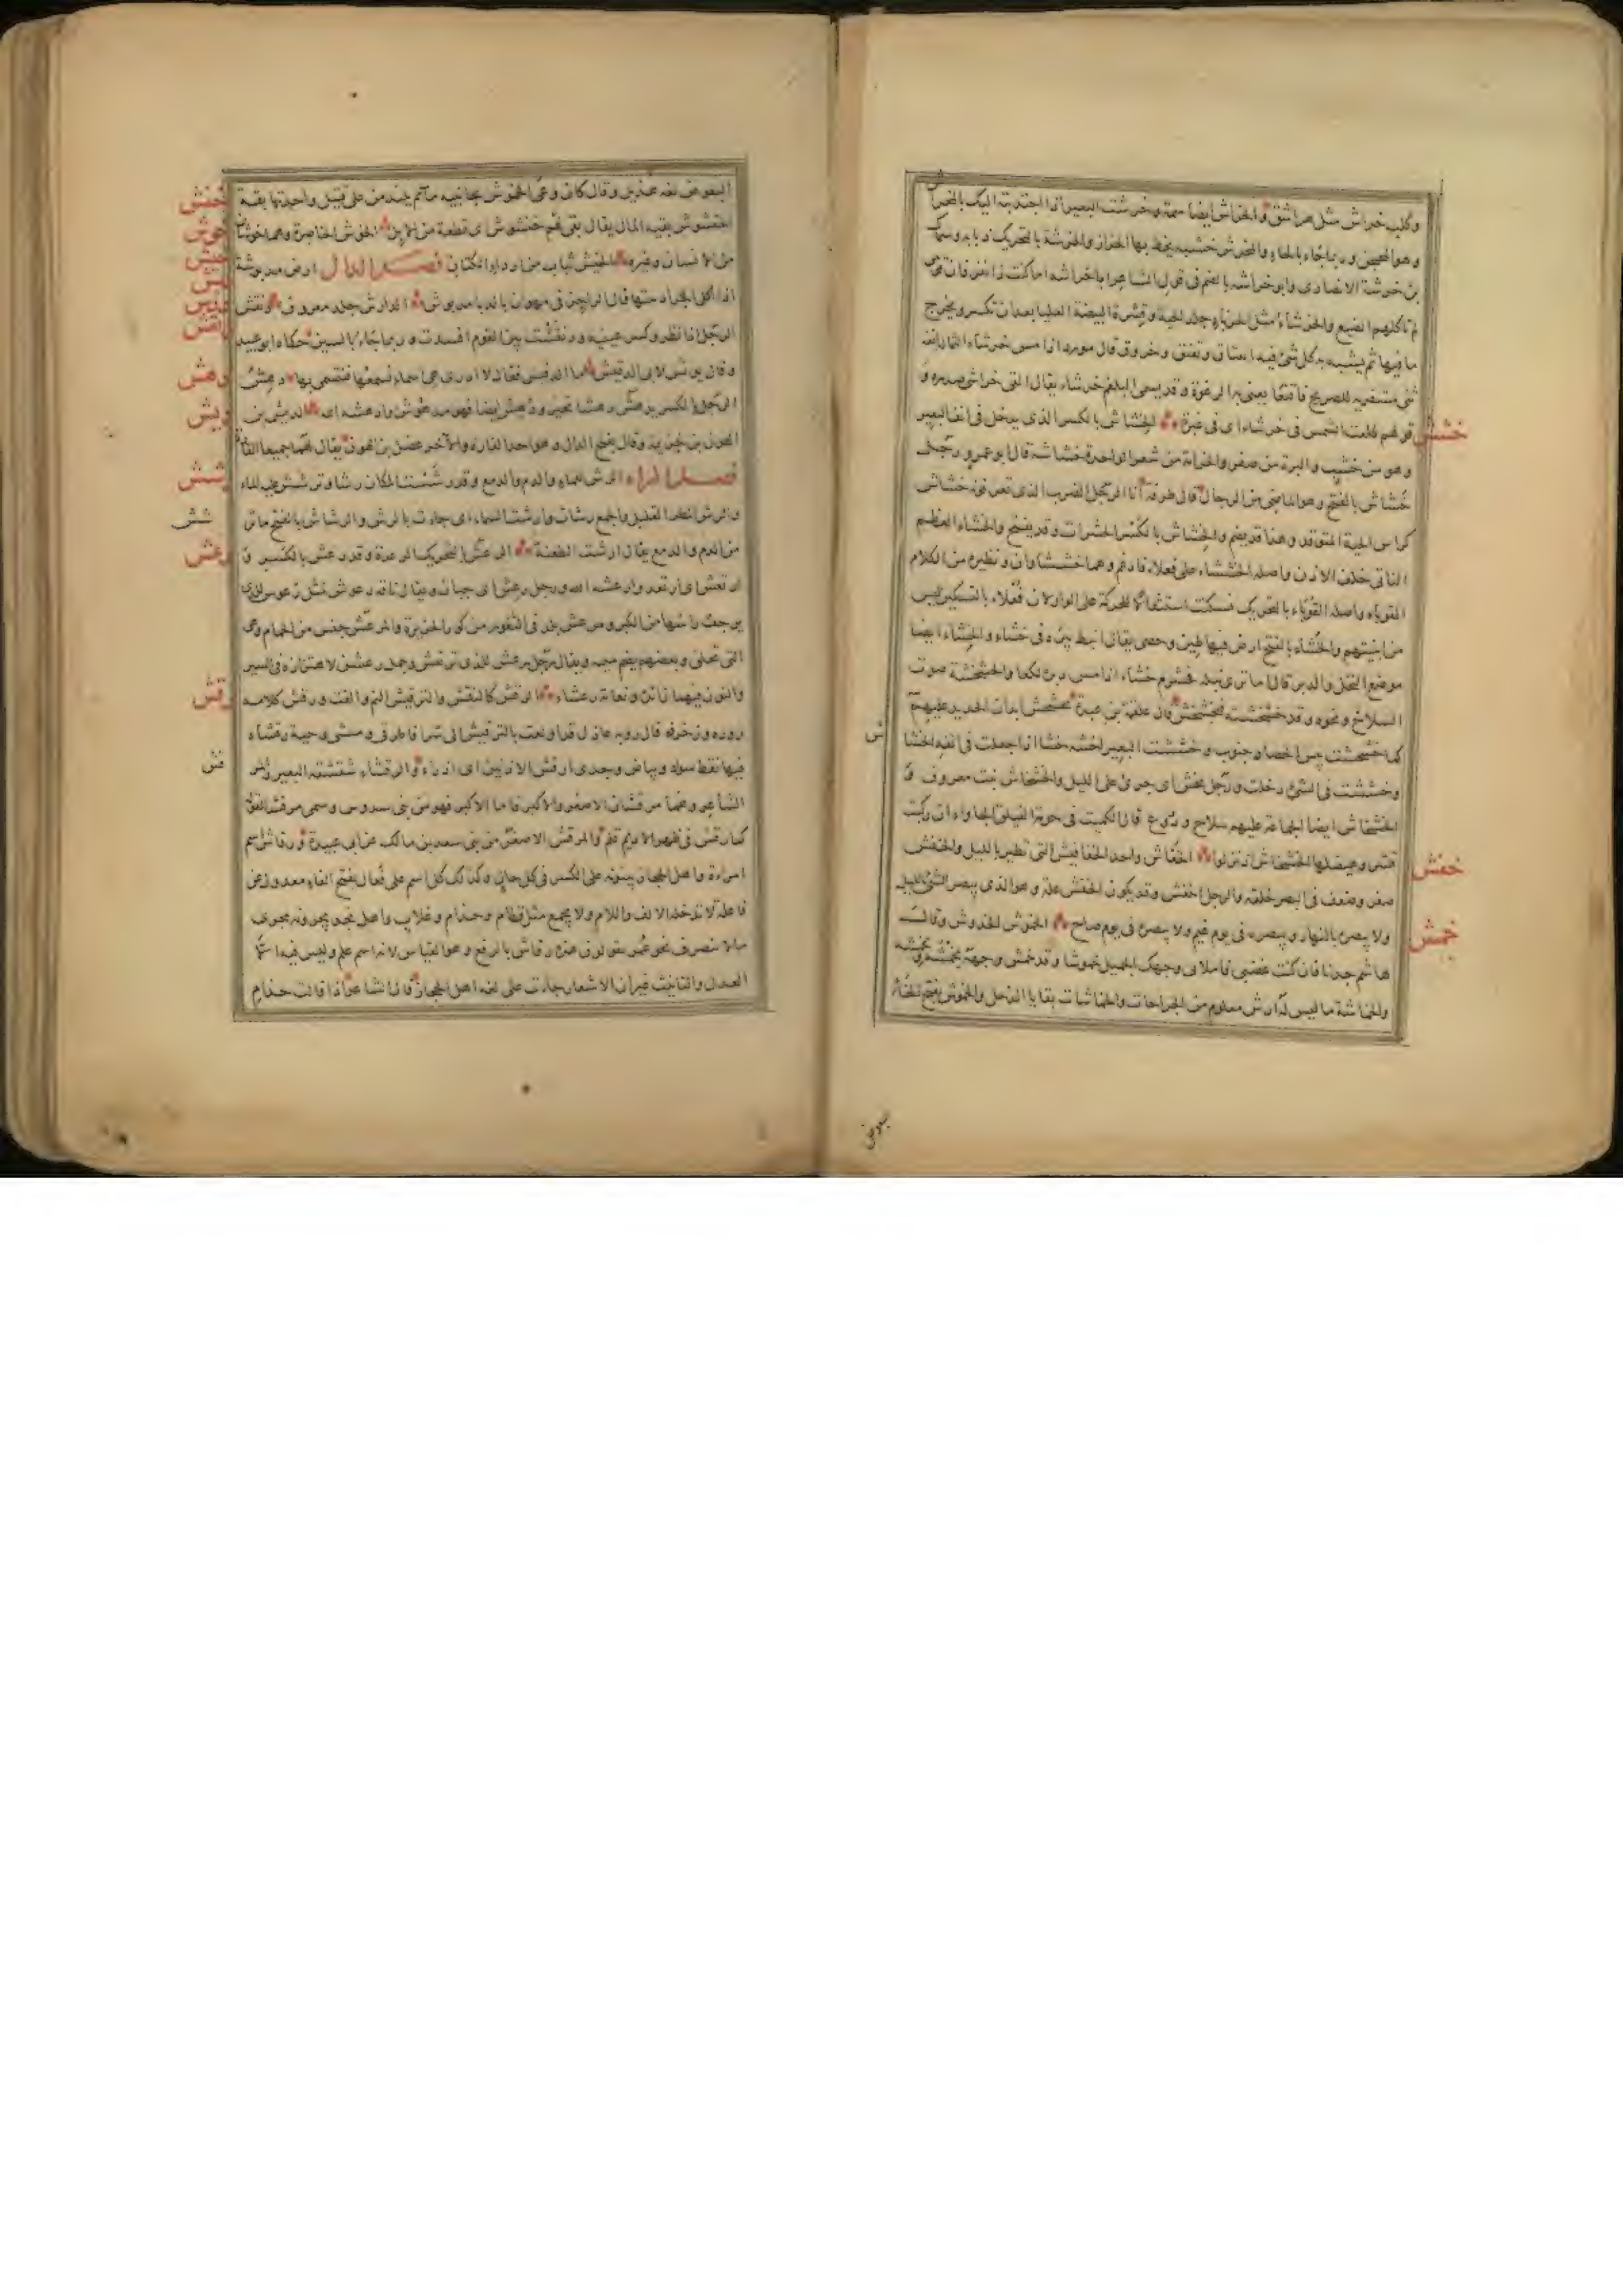 وكلب خراش مثل هراش والخراش ايضا سمة وخرشت البعير اذا اجتذبته اليك بالمخراش
وهو المحجن وربما جاء بالحاء والمخرش خشبة يخط بها الخراز والخرشة بالتحريك ذبابة وسماك
بن خرشة الانصارى وابو خراشة بالضم فى قول الشاعر ابا خراشة اما كنت ذا نفر فان قومى
لم تاكلهم الضبع والخرشاء مثل الحرباء جلد الحية وقشرة البيضة العليا بعد ان تكسر ويخرج
ما فيها ثم يشبه به كل شئ فيه انتفاخ وتفتق وخروق قال مزرد اذا مس خرشاء الثمالة انفه
ثنى مشفريه للصريح فاقنعا يعنى بها الرغوة وقد يسمى البلغم خرشاء يقال القى خراشى صدره و
قولهم طلعت الشمس فى خرشاء اى فى غبرة الخشاش بالكسر الذى يدخل فى انف البعير
خشش
وهو من خشب والبرة من صفر والخزامة من شعر الواحدة خشاشة قال ابو عمرو رجل
خشاش بالفتح وهو الماضى من الرجال قال طرفة انا الرجل الضرب الذى تعرفونه خشاش
كراس الحية المتوقد وهذا قد يضم والخشاش بالكسر الحشرات وقد يفتح والخشاء العظم
الناتى خلف الاذن واصله الخششاء على فعلاء فادغم وهما خششاوان ونظيره من الكلام
القوباء واصله القوباء بالتحريك فسكنت استثقالا للحركة على الواو لان فعلاء بالتسكين ليس
من ابنيتهم والخشاء بالفتح ارض فيها طين وحصى يقال انبط بئره فى خشاء والخشاء ايضا
موضع النحل والدبر قال
السلاح ونحوه وقد خشخشته فتخشخش قال علقمة بن عبدة تخشخش ابدان الحديد عليهم
كما خشخشت يبس الحصاد جنوب وخششت البعير اخشه خشا اذا جعلت فى انفه الخشاش
وخششت فى الشئ دخلت ورجل مخش اى جرئ على الليل والخشخاش نبت معروف و
الخشخاش ايضا الجماعة عليهم سلاح ودروع قال الكميت فى حومة الفيلق الجاواء ان ركبت
قسر وهيضلها الخشخاش اذ نزلوا الخفاش واحد الخفافيش التى تطير بالليل والخفش
خفش
صغر وضعف فى البصر خلقة والرجل اخفش وقد يكون الخفش علة وهو الذى يبصر الشئ بالليل
ولا يبصره بالنهار ويبصره فى يوم غيم ولا يبصره فى يوم صاح الخموش الخدوش وقال
خمش
هاشم جدنا فان كنت غضبى فاملاى وجهك الجميل خموشا وقد خمش وجهه يخمشه ويخمشه
والخماشة ما ليس له ارش معلوم من الجراحات والخماشات بقايا الذحل والخموش بفتح الخاء
بعوض
البعوض لغة هذيل وقال كان وغى الخموش بجانبيه مآتم يلتدمن على قتيل واحدتها بقة
خنش
الخنشوش بقية المال يقال بقى لهم خنشوش اى قطعة من الابل الخوش الخاصرة وهما خوشان
خوش
من الانسان وغيره الخيش ثياب من اردا الكتان فصل الدال ارض مدبوشة
خيش
اذا اكل الجراد نبتها قال الراجز فى مهوان بالدبا مدبوش الدارش جلد معروف دنقش
الرجل اذا نظر وكسر عينيه ودنقشت بين القوم افسدت وربما جاء بالسين حكاه ابو عبيد
وقال يونس لابى الدقيش ما الدقيش فقال لا ادرى هى اسماء نسمعها فنتسمى بها دهش
دهش
الرجل بالكسر يدهش دهشا تحير ودهش ايضا فهو مدهوش وادهشه الله الديش بن
ديش
الهون بن خزيمة وقال بفتح الدال وهو احد القارة والآخر عضل بن الهون يقال لهما جميعا القارة
فصل الراء الرش للماء والدم والدمع وقد رششت المكان رشا وترشش عليه الماء
رشش
والرش المطر القليل والجمع رشاش وارشت السماء اى جاءت بالرش والرشاش بالفتح ما ترشش
من الدم والدمع يقال ارشت الطعنة الرعش بالتحريك الرعدة وقد رعش بالكسر و
رعش
ارتعش اى ارتعد وارعشه الله ورجل رعش اى جبان ويقال ناقة رعوش مثل رعوس للتى
يرجف راسها من الكبر ومرعش بلد فى الثغور من كور الجزيرة والمرعش جنس من الحمام وهى
التى تحلق وبعضهم يضم ميمه ويقال رجل رعشن للذى يرتعش وجمل رعشن لاهتزازه فى السير
والنون فيهما زائدة ونعامة رعشاء الرقش كالنقش والترقيش النم والقت ورقش كلامه
رقش
زوره وزخرفه قال رؤبة عاذل قد اولعت بالترقيش الى سرا فاطرقى وميشى وحية رقشاء
فيها نقط سواد وبياض وجدى ارقش الاذنين اى اذرأ والرقشاء شقشقة البعير ومرقش
الشاعر وهما مرقشان الاصغر والاكبر فاما الاكبر فهو من بنى سدوس وسمى مرقشا لقوله
كما رقش فى ظهر الاديم قلم والمرقش الاصغر من بنى سعد بن مالك عن ابى عبيدة ورقاش اسم
امراة واهل الحجاز يبنونه على الكسر فى كل حال وكذلك كل اسم على فعال بفتح الفاء معدول عن
فاعلة لا تدخله الالف واللام ولا يجمع مثل قطام وحذام وغلاب واهل نجد يجرونه مجرى
ما لا ينصرف نحو عمر يقولون هذه رقاش بالرفع وهو القياس لانه اسم علم وليس فيه الا
العدل والتانيث غير ان الاشعار جاءت على لغة اهل الحجاز قال الشاعر اذا قالت حذام